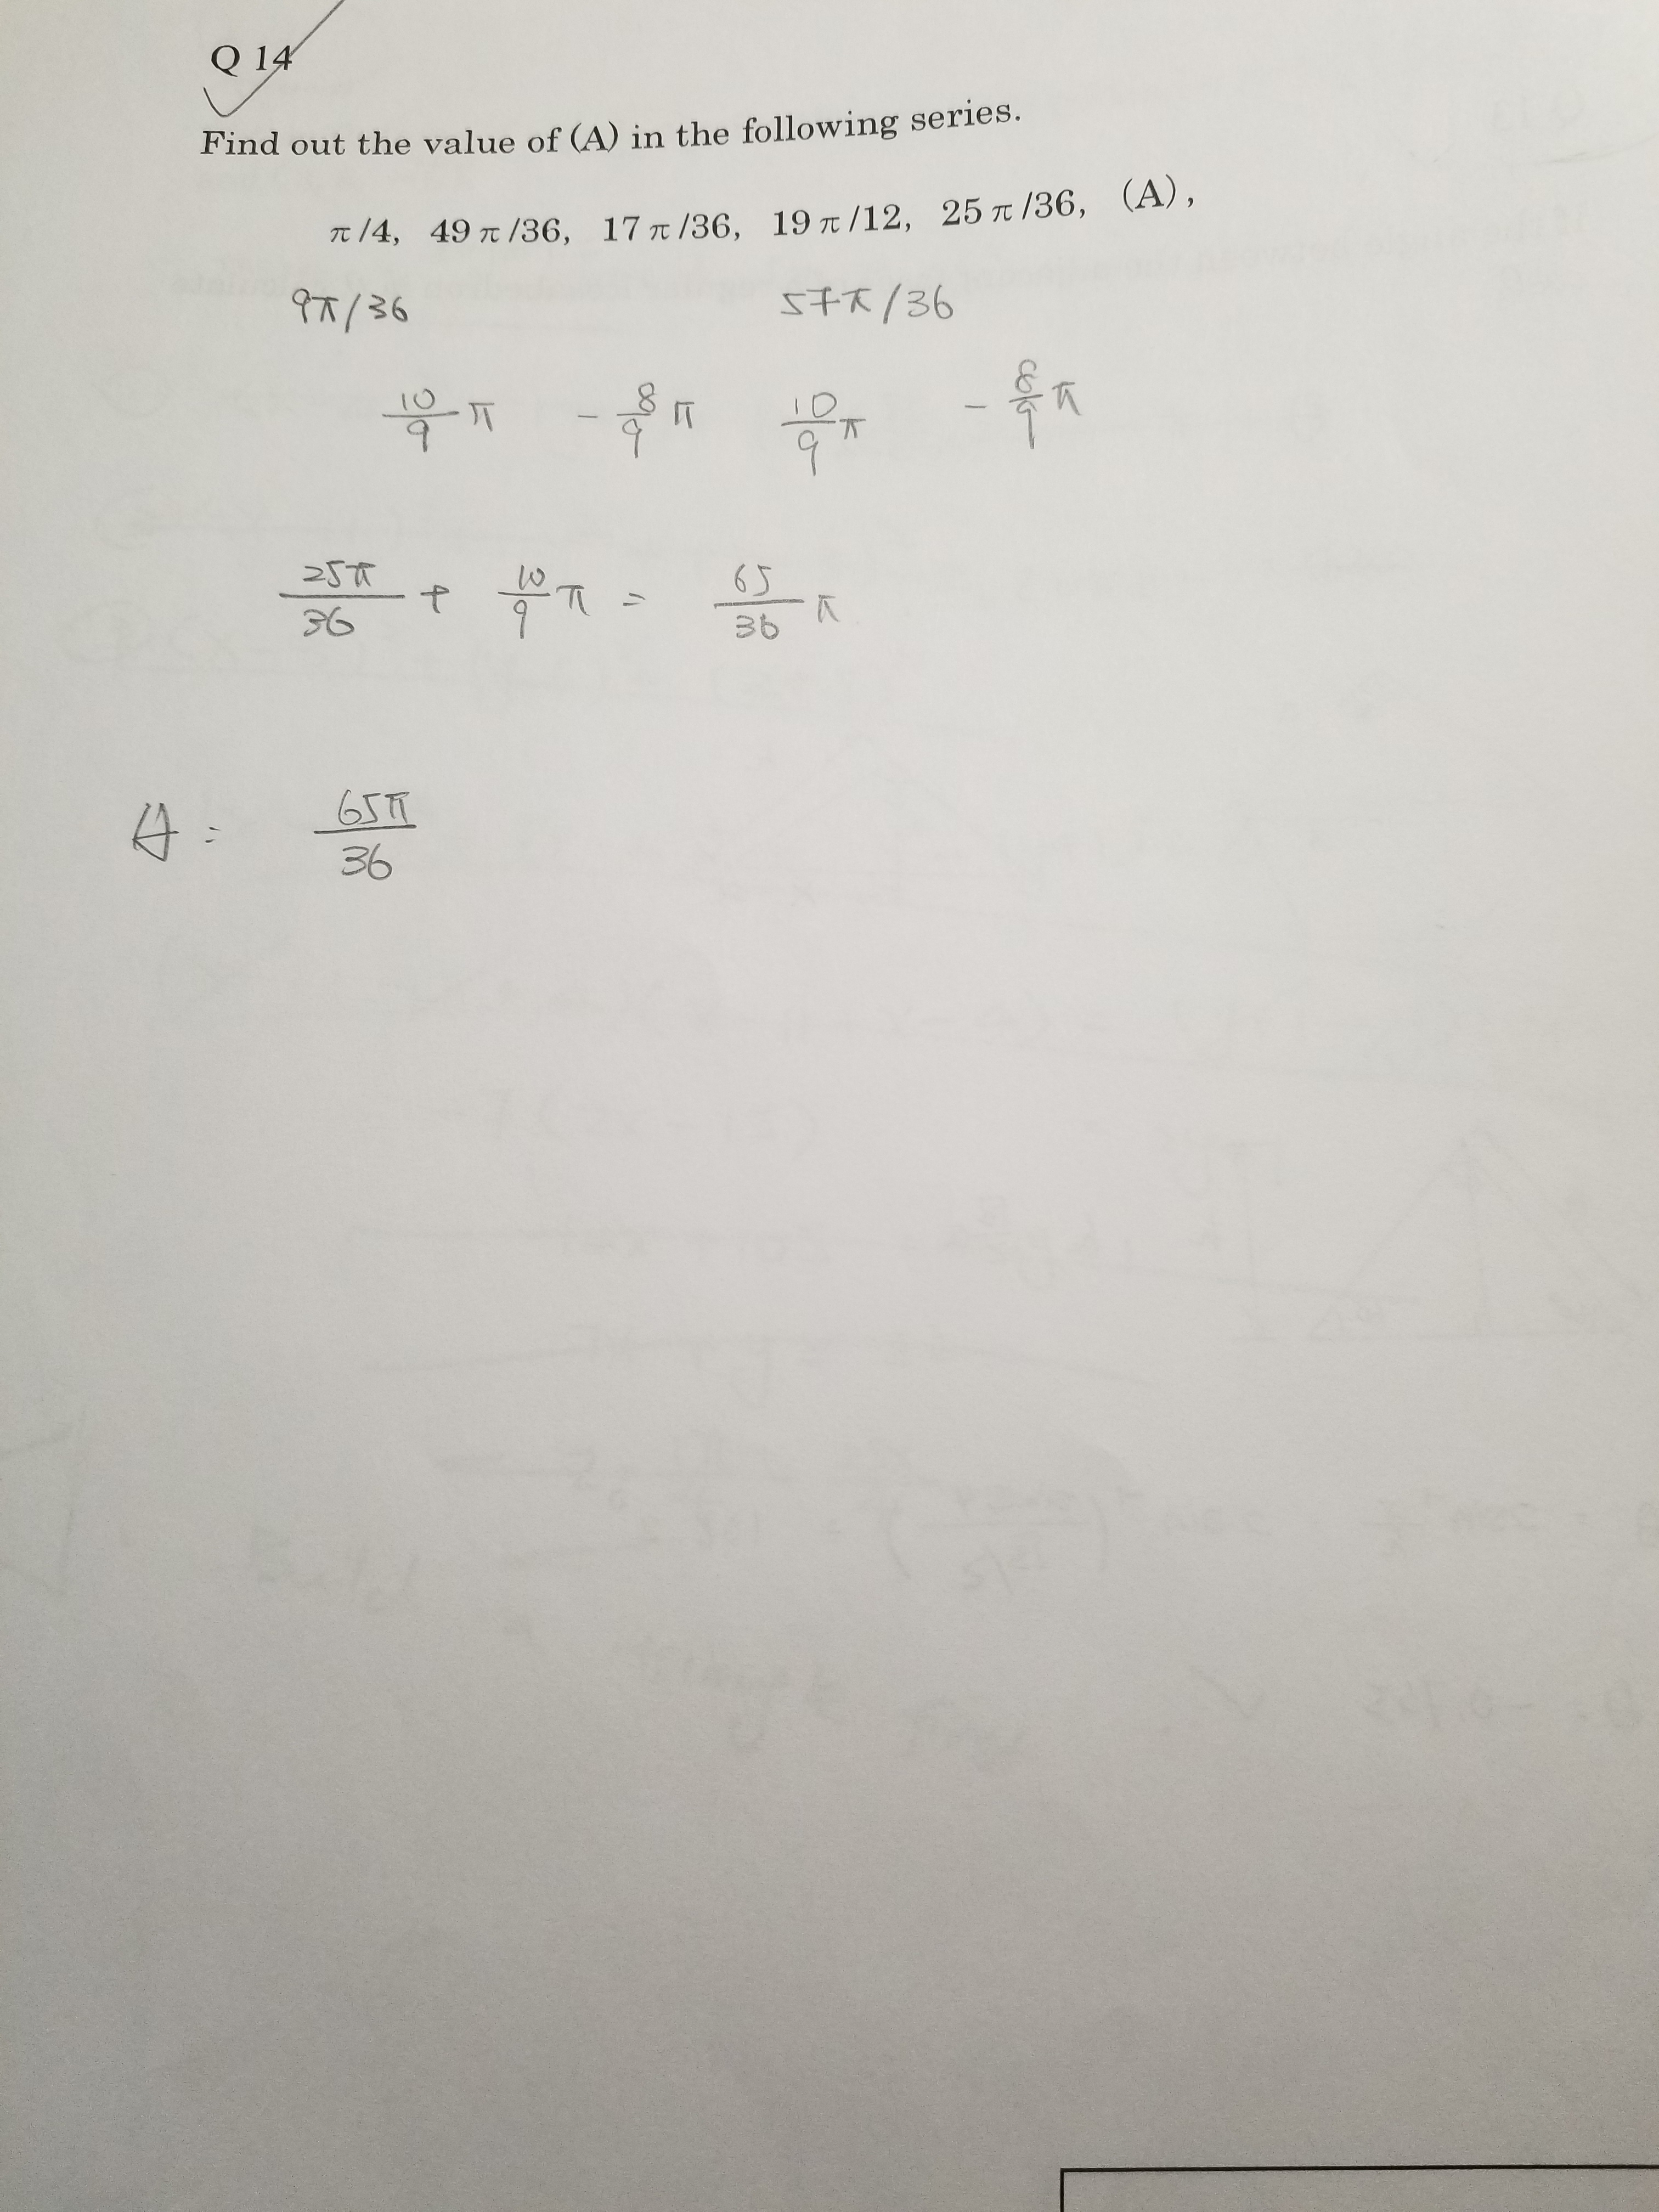 Q 14
Find out the value of (A) in the following series.
π/4, 49π/36, 17π/36, 19π/12, 25π/36, (A),
9π/36 57π/36
10/9 π - 8/9 π 10/9 π - 8/9 π
25π/36 + 10/9 π = 65/36 π
A = 65π/36